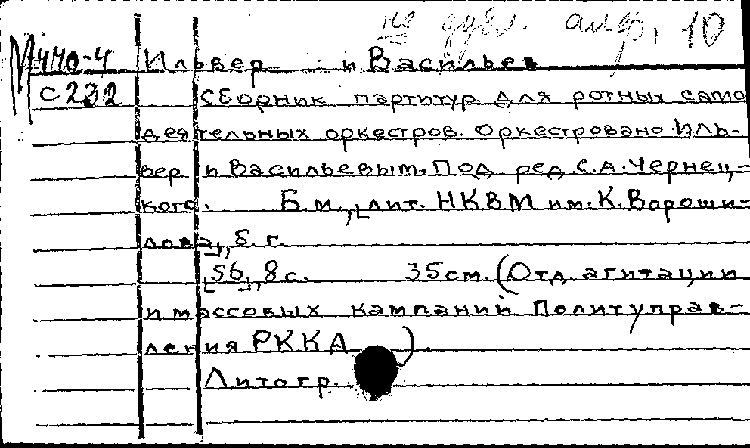 не дубл. алф. 10
М 440-4 Ильвер и Васильев
С 232 Сборник партитур для ротных само
деятельных оркестров. Оркестровано Иль-
вер и Васильевым. Под ред. С.А. Чернец-
кого. Б.м., лит. НКВМ им. К. Вороши-
лова, б. г.
56, 8 с. 35 см. (Отд. агитации
и массовых кампаний Политуправ-
ления РККА ).
Литогр.